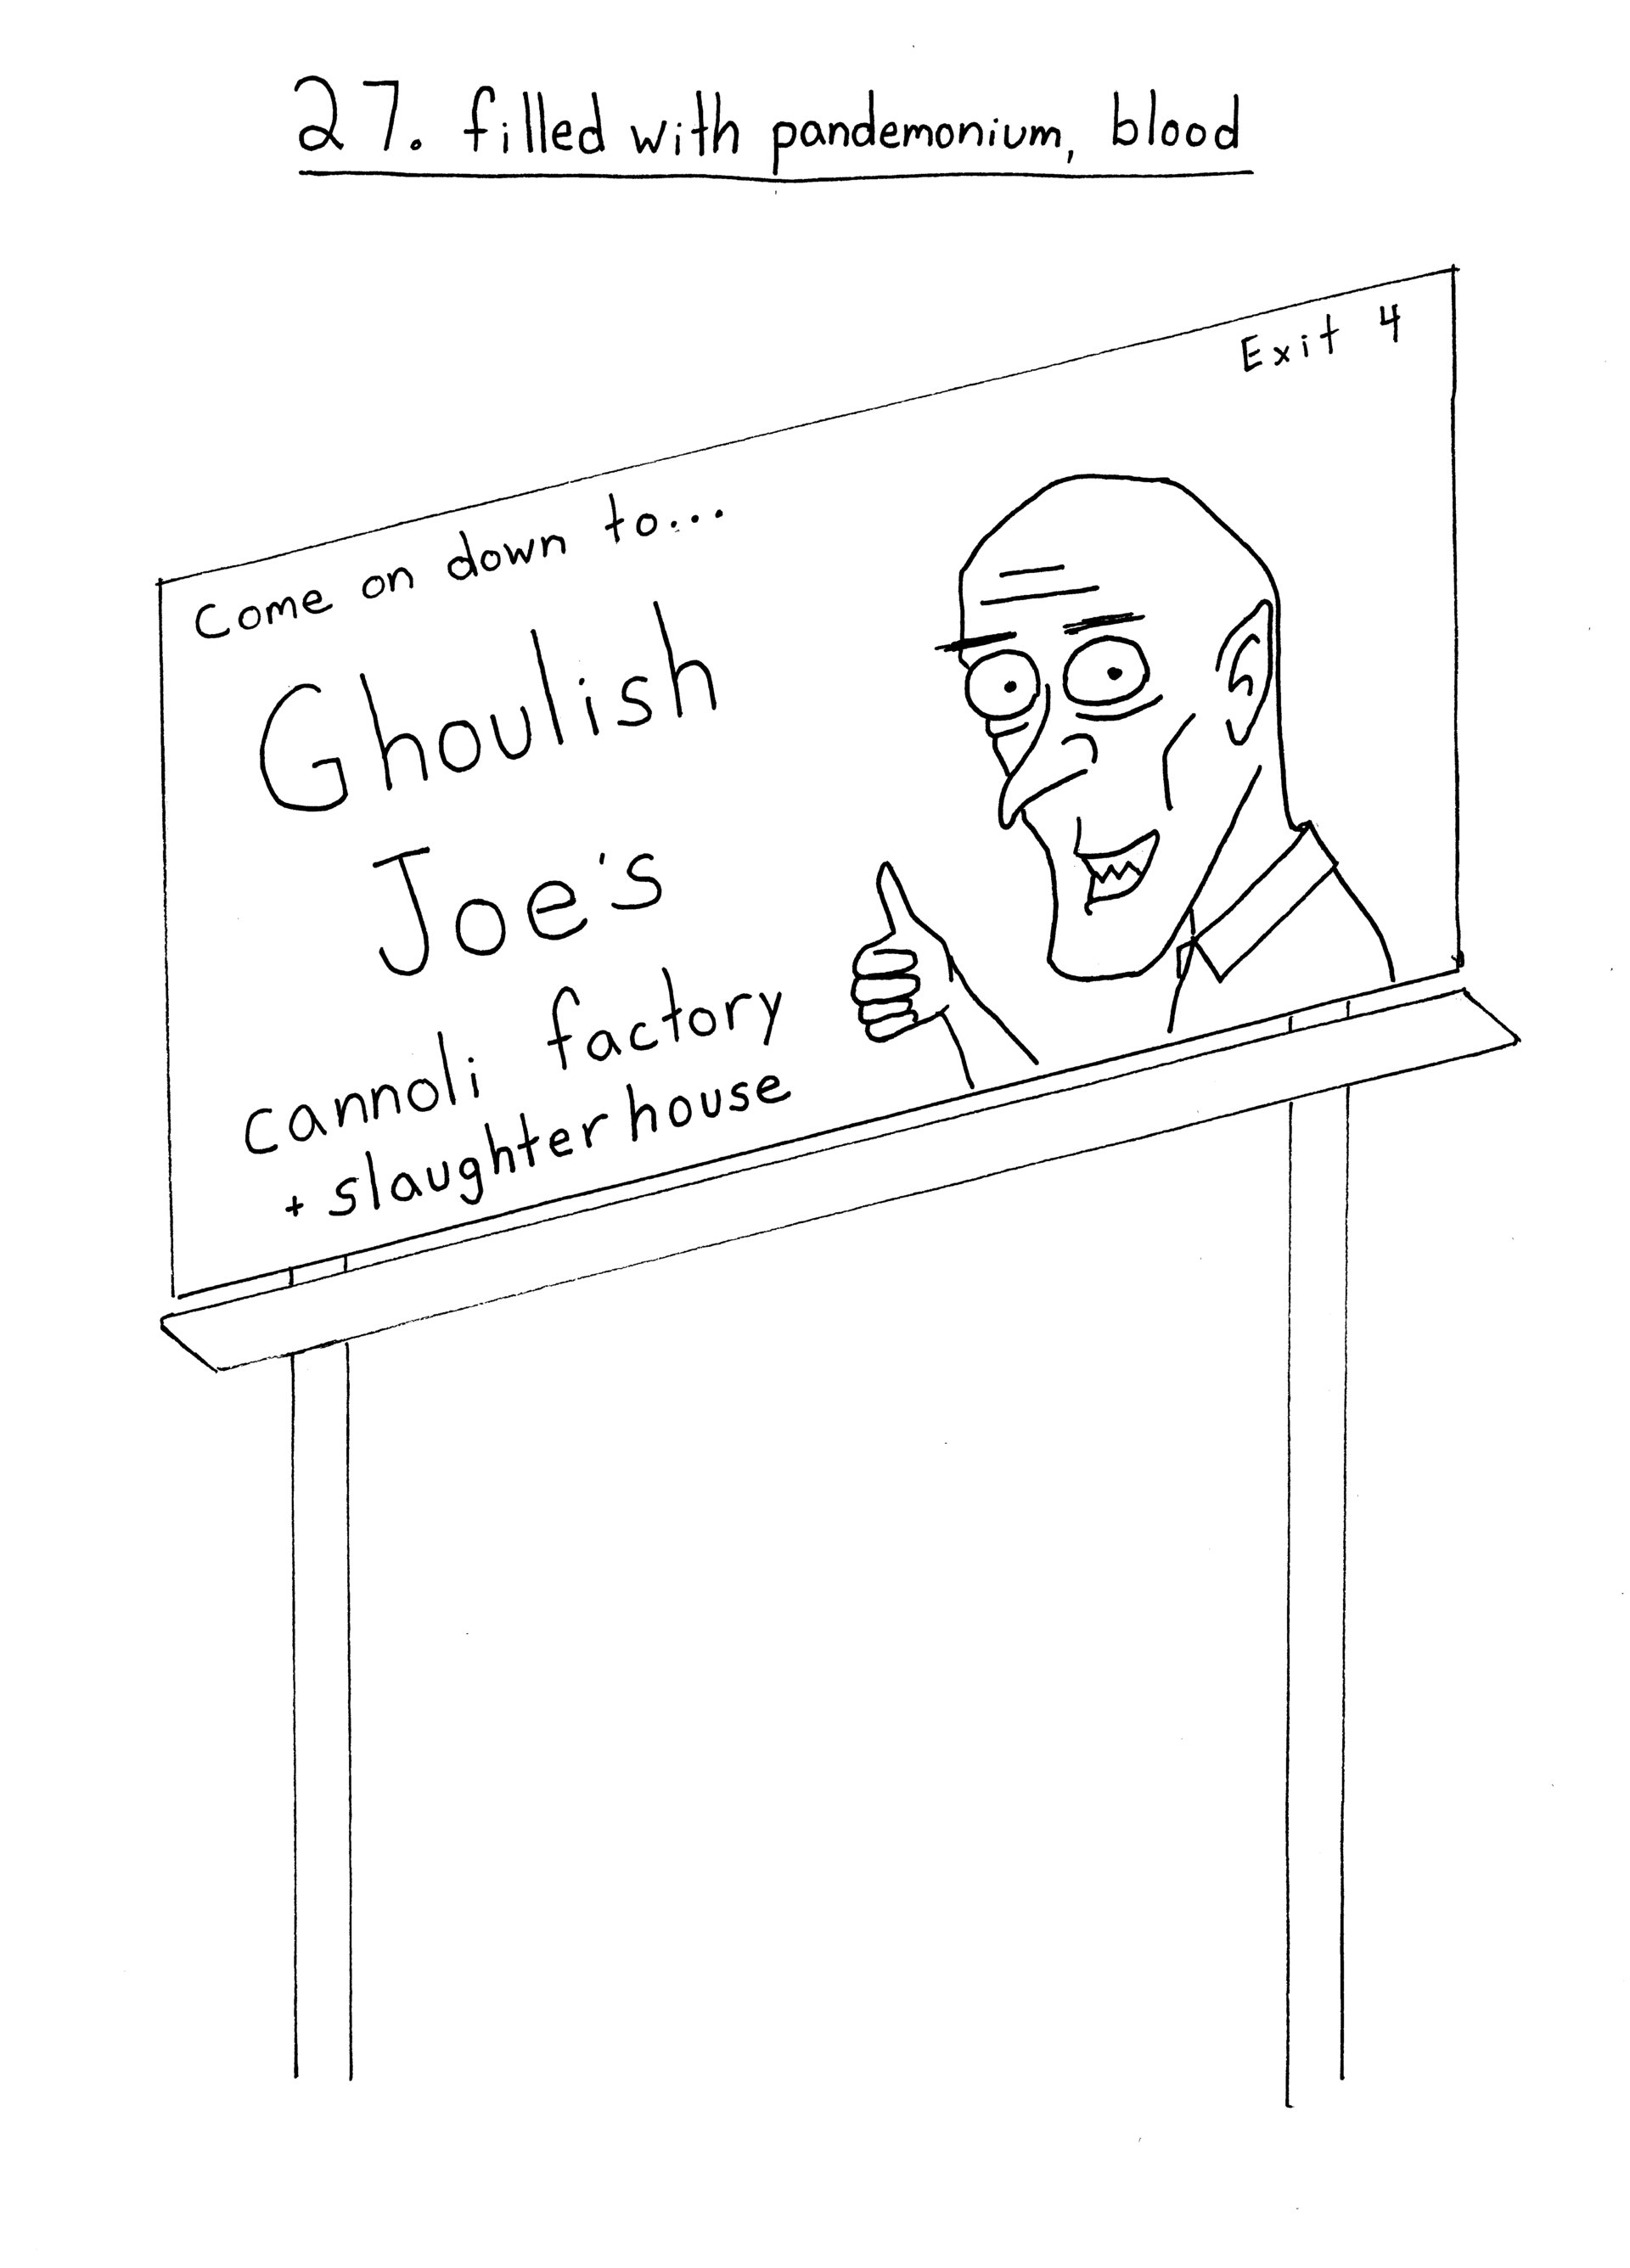 27. filled with pandemonium, blood
Exit 4
Come on down to...
Ghoulish
Joe's
cannoli factory
+ slaughterhouse